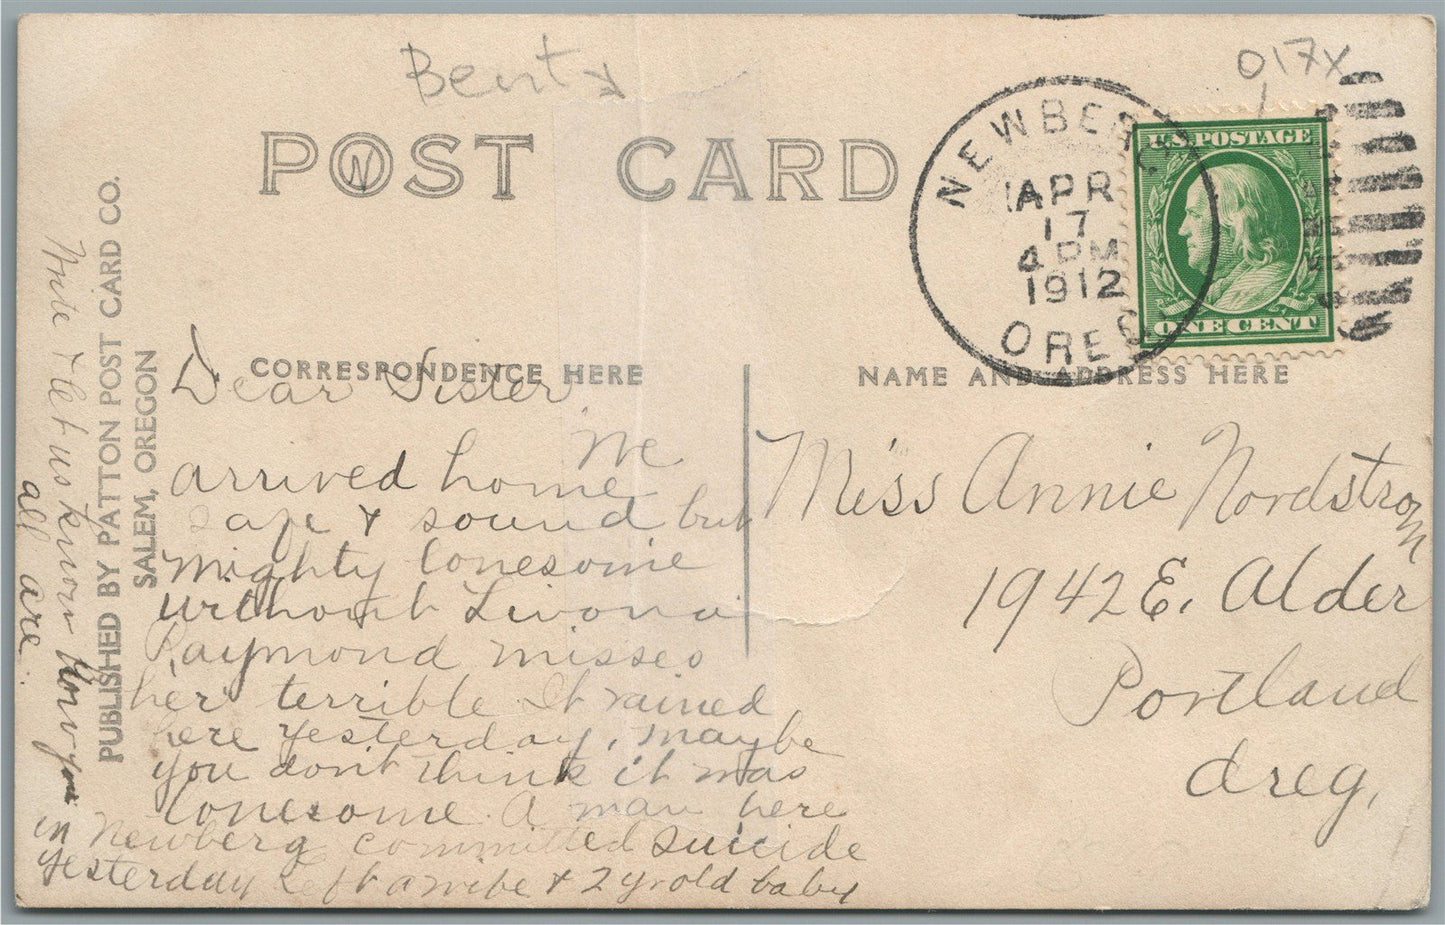 Bent
017X
1
POST CARD
N
NEWBERG
APR
17
4 PM
1912
OREG.
U.S. POSTAGE
ONE CENT
CORRESPONDENCE HERE
NAME AND ADDRESS HERE
PUBLISHED BY PATTON POST CARD CO.
SALEM, OREGON
Dear Sister
We
arrived home
safe & sound but
mighty lonesome
without Livona
Raymond misses
her terrible It rained
here yesterday, maybe
you don't think it was
lonesome. A man here
in Newberg committed suicide
yesterday Left a wife & 2 yr old baby
Write & let us know how you
all are.
Miss Annie Nordstrom
1942 E. Alder
Portland
Oreg,